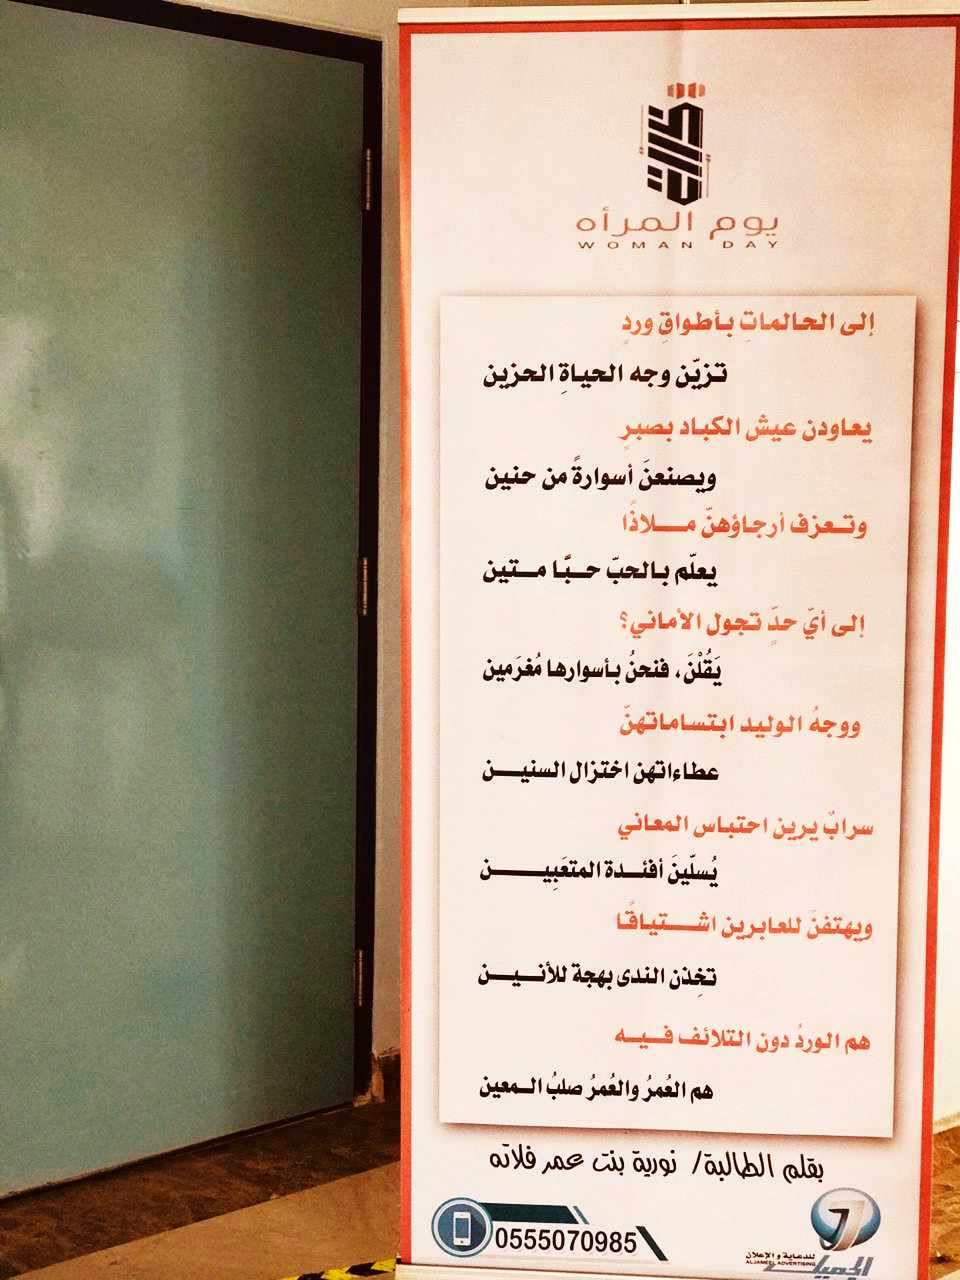 يوم المرأه
WOMAN DAY
إلى الحالماتِ بأطواقِ وردٍ
تزيّن وجه الحياةِ الحزين
يعاودن عيش الكباد بصبرٍ
ويصنعنَ أسوارةً من حنين
وتعزف أرجاؤهنّ ملاذًا
يعلّم بالحبّ حبًّا متين
إلى أيّ حدٍّ تجول الأماني؟
يَقُلْنَ، فنحنُ بأسوارها مُغرَمين
ووجهُ الوليد ابتساماتهنّ
عطاءاتهن اختزال السنين
سرابٌ يرين احتباس المعاني
يُسلّينَ أفئدة المتعَبِين
ويهتفنَ للعابرين اشتياقًا
تخِذن الندى بهجة للأنين
هم الوردُ دون التلائف فيه
هم العُمرُ والعُمرُ صلبُ المعين
بقلم الطالبة/ نورية بنت عمر فلاته
0555070985
للدعاية و الإعلان
ALJAMEEL ADVERTISING
الجميل